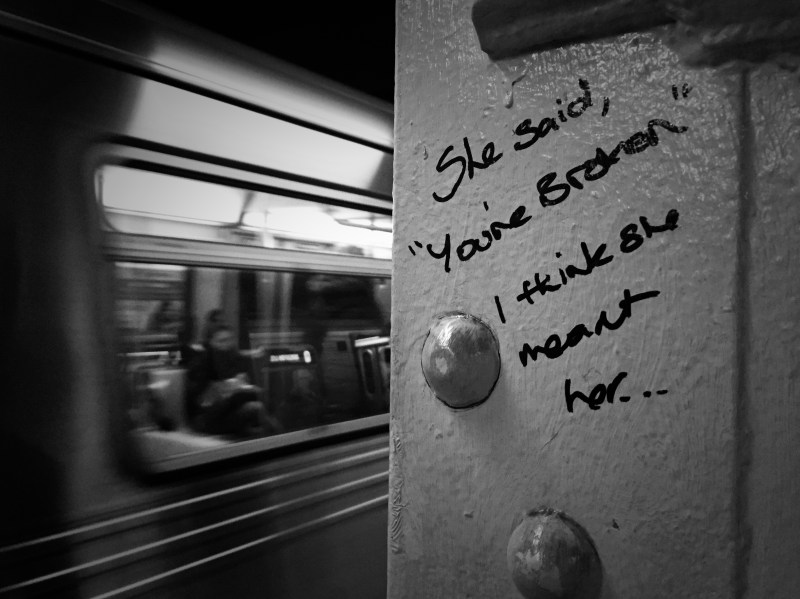 She said,
"You're Broken"
I think she
meant
her...